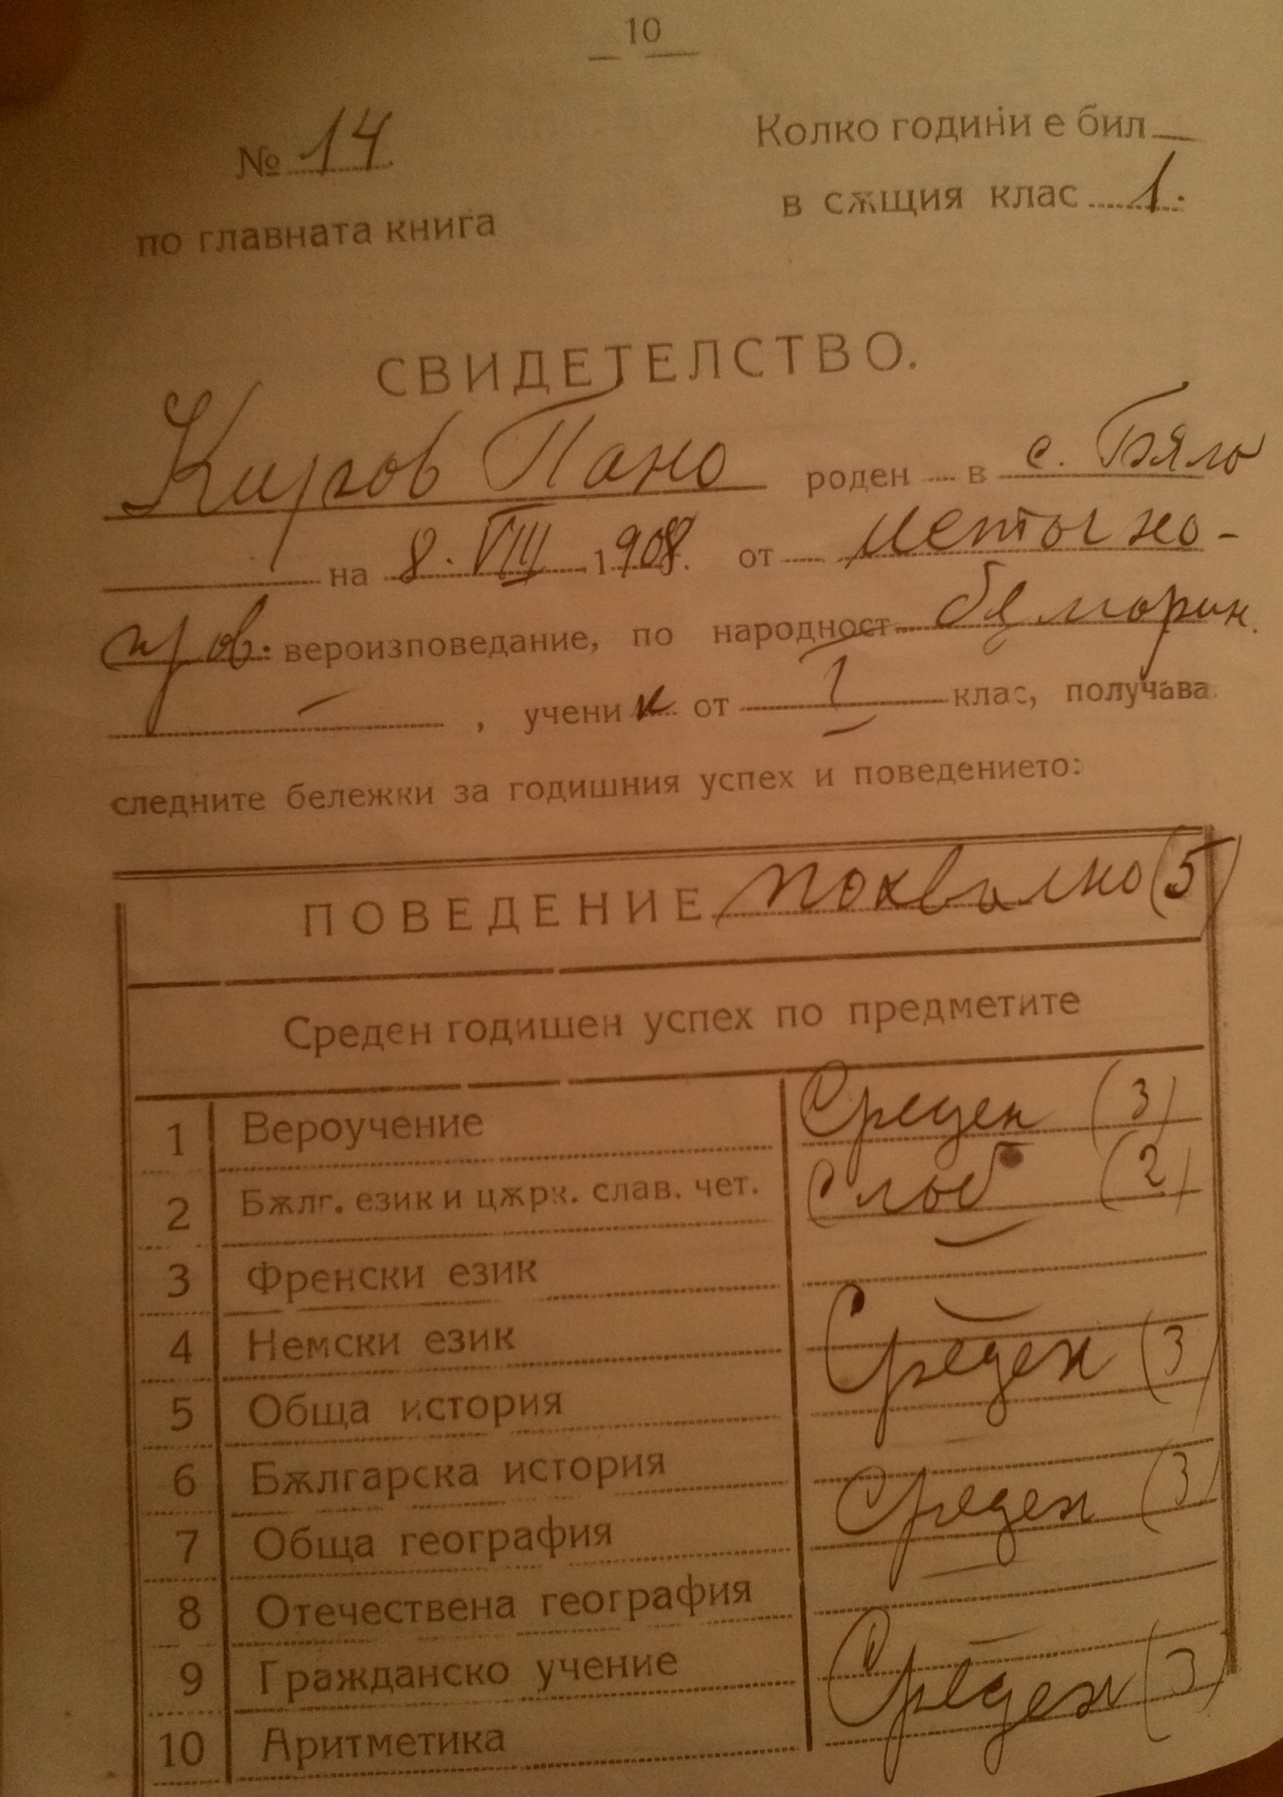 10
№ 14
по главната книга
Колко години е бил
в сѫщия клас 1.
СВИДЕТЕЛСТВО.
Киров Пано роден в с. Бяло
на 8. VIII 1908. от источно-
прав. вероизповедание, по народност българин.
, ученик от I клас, получава
следните бележки за годишния успех и поведението:
ПОВЕДЕНИЕ похвално (5)
Среден годишен успех по предметите
1 Вероучение Среден (3)
2 Бѫлг. език и цѫрк. слав. чет. Слаб (2)
3 Френски език —
4 Немски език —
5 Обща история Среден (3)
6 Бѫлгарска история —
7 Обща география Среден (3)
8 Отечествена география —
9 Гражданско учение —
10 Аритметика Среден (3)